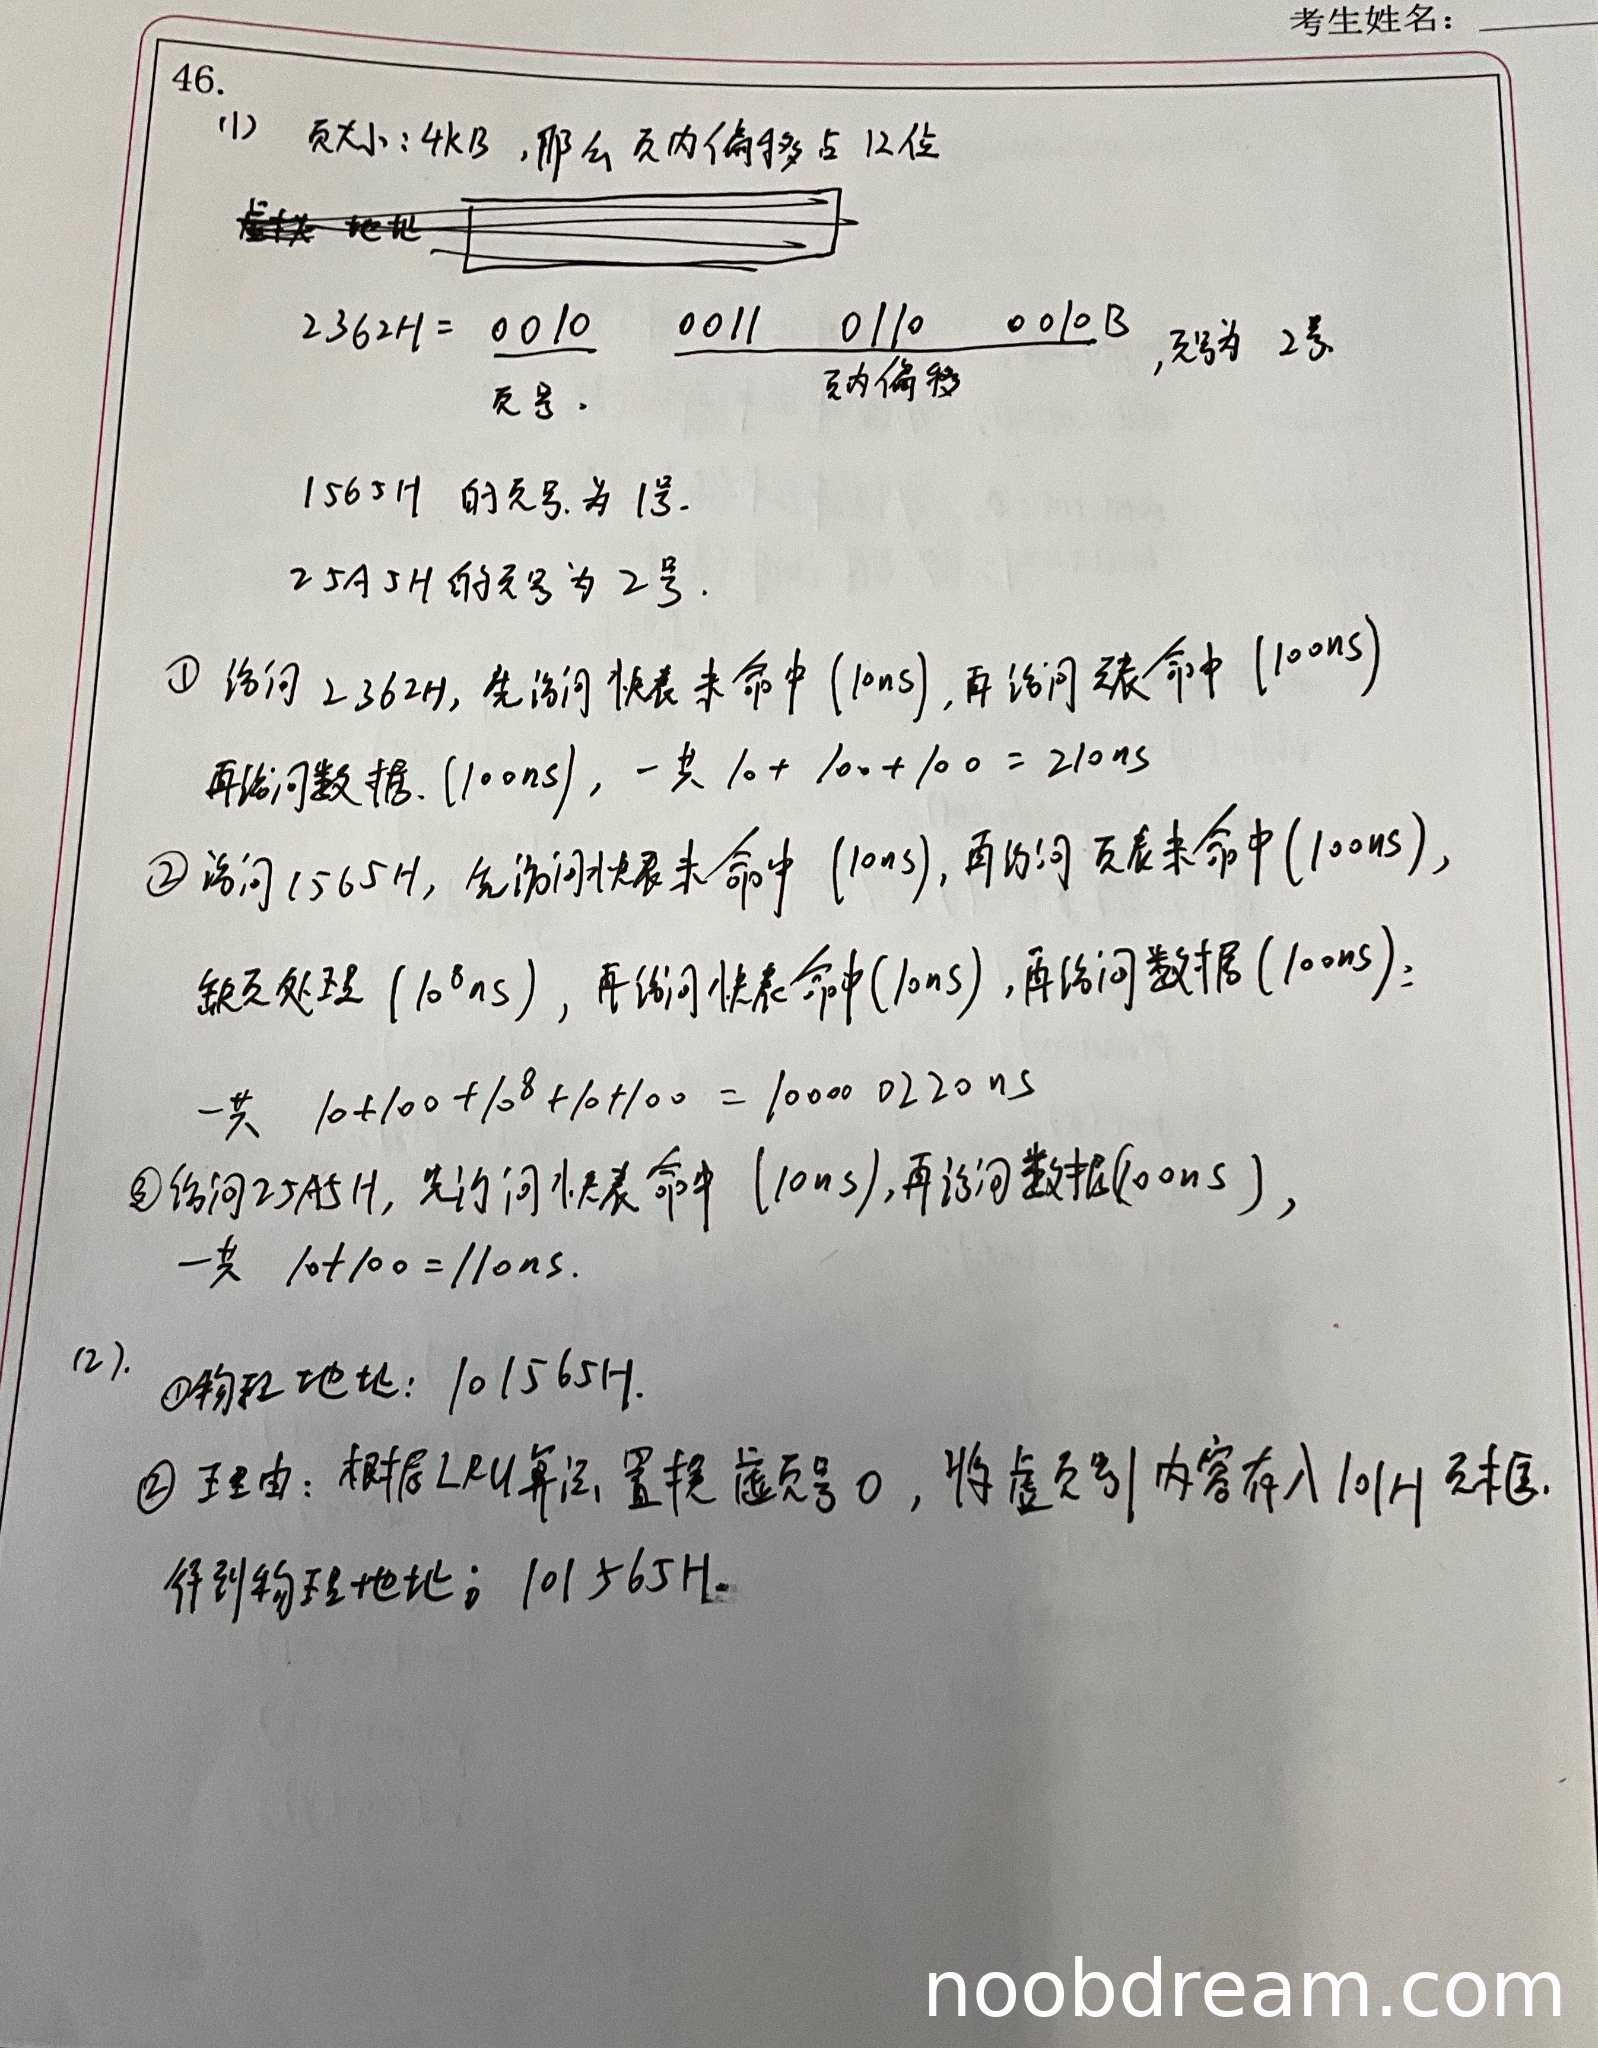 考生姓名:
46.
(1) 页大小:4KB,那么页内偏移占12位
虚拟地址
2362H = 0010 0011 0110 0010B,页号为 2号.
页号. 页内偏移
1565H 的页号.为 1号.
25A5H的页号为2号.
① 访问 2362H,先访问快表未命中(10ns),再访问页表命中(100ns)
再访问数据.(100ns),一共 10+100+100=210ns
② 访问1565H,先访问快表未命中(10ns),再访问页表未命中(100ns),
缺页处理(10⁸ns),再访问快表命中(10ns),再访问数据(100ns):
一共 10+100+10⁸+10+100 = 100000220ns
③访问25A5H,先访问快表命中(10ns),再访问数据(100ns),
一共 10+100=110ns.
(2). ①物理地址:101565H.
② 理由:根据LRU算法,置换虚页号0,将虚页号1内容存入101H页框.
得到物理地址:101565H.
noobdream.com